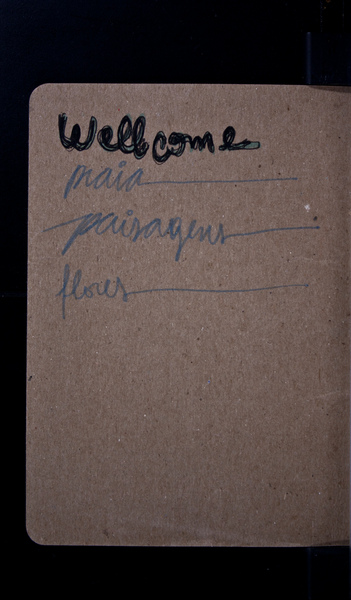 Wellcome
praia
paisagens
flores